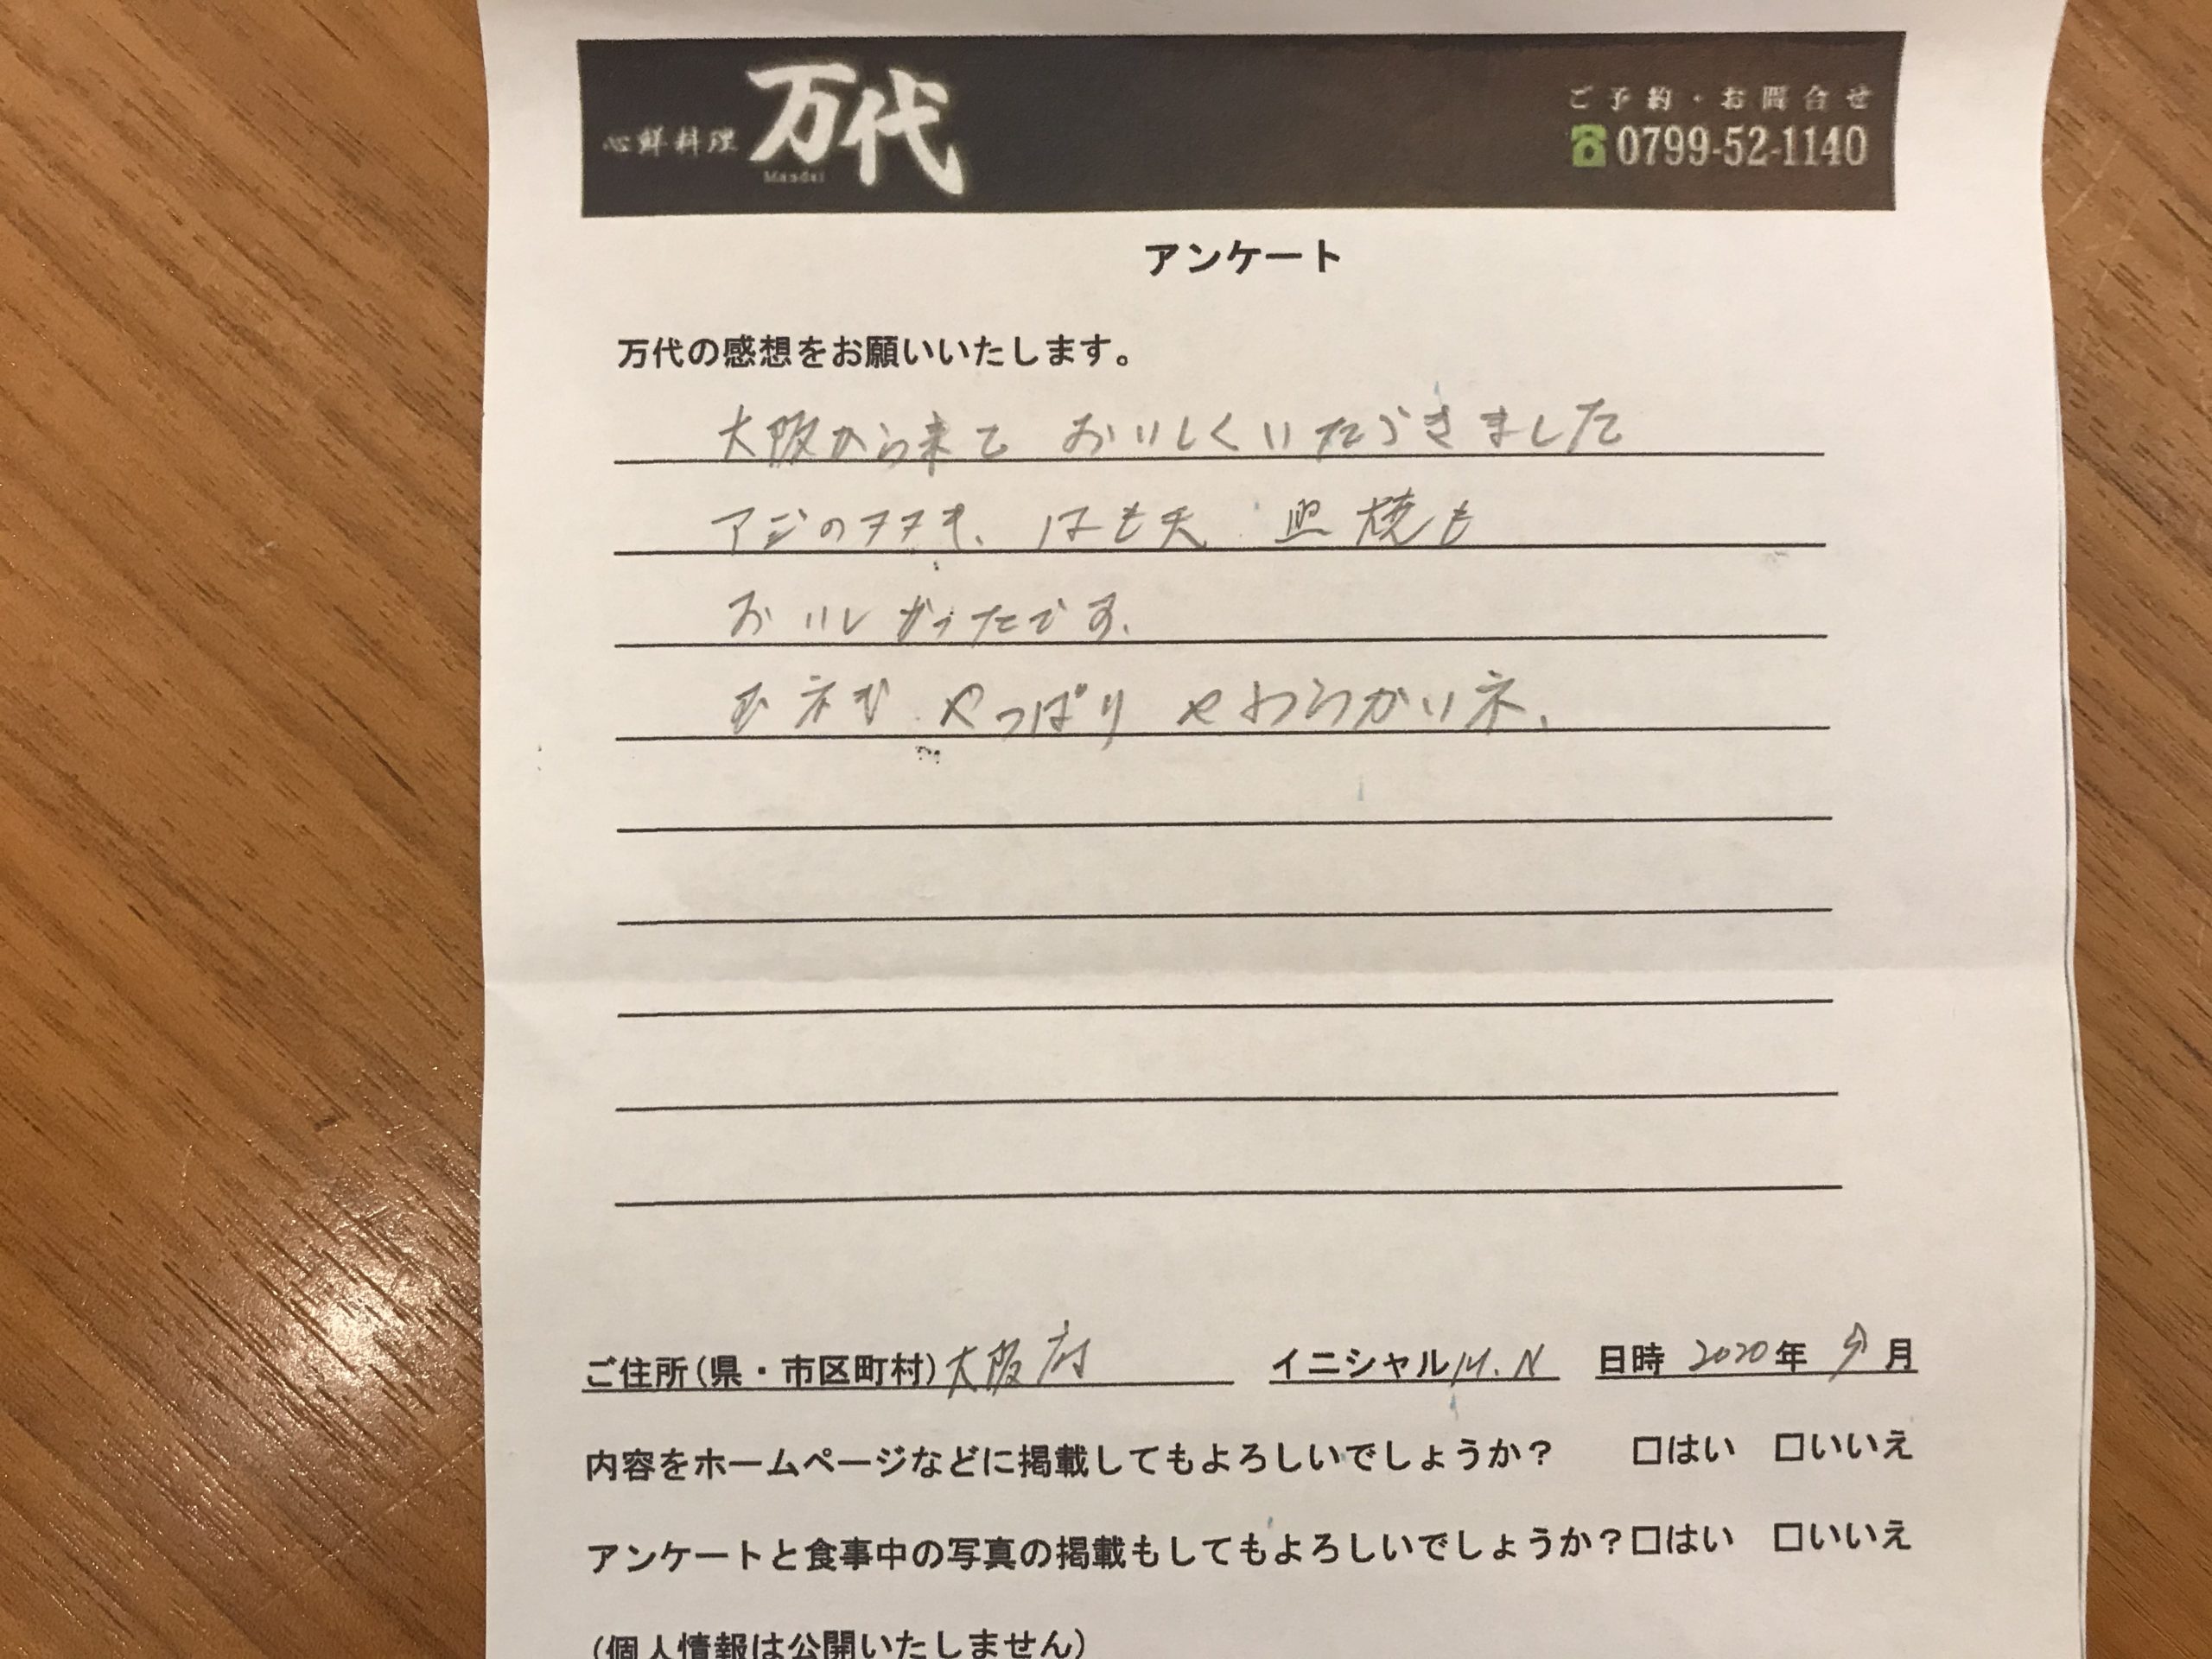 心鮮料理 万代
Mandai
ご予約・お問合せ
0799-52-1140
アンケート
万代の感想をお願いいたします。
大阪から来て おいしくいただきました
アジのタタキ、はも天 皿焼も
おいしかったです。
玉ネギ やっぱり やわらかいネ、
ご住所(県・市区町村)大阪府 イニシャル M.N 日時 2020年 月
内容をホームページなどに掲載してもよろしいでしょうか? □はい □いいえ
アンケートと食事中の写真の掲載もしてもよろしいでしょうか?□はい □いいえ
(個人情報は公開いたしません)